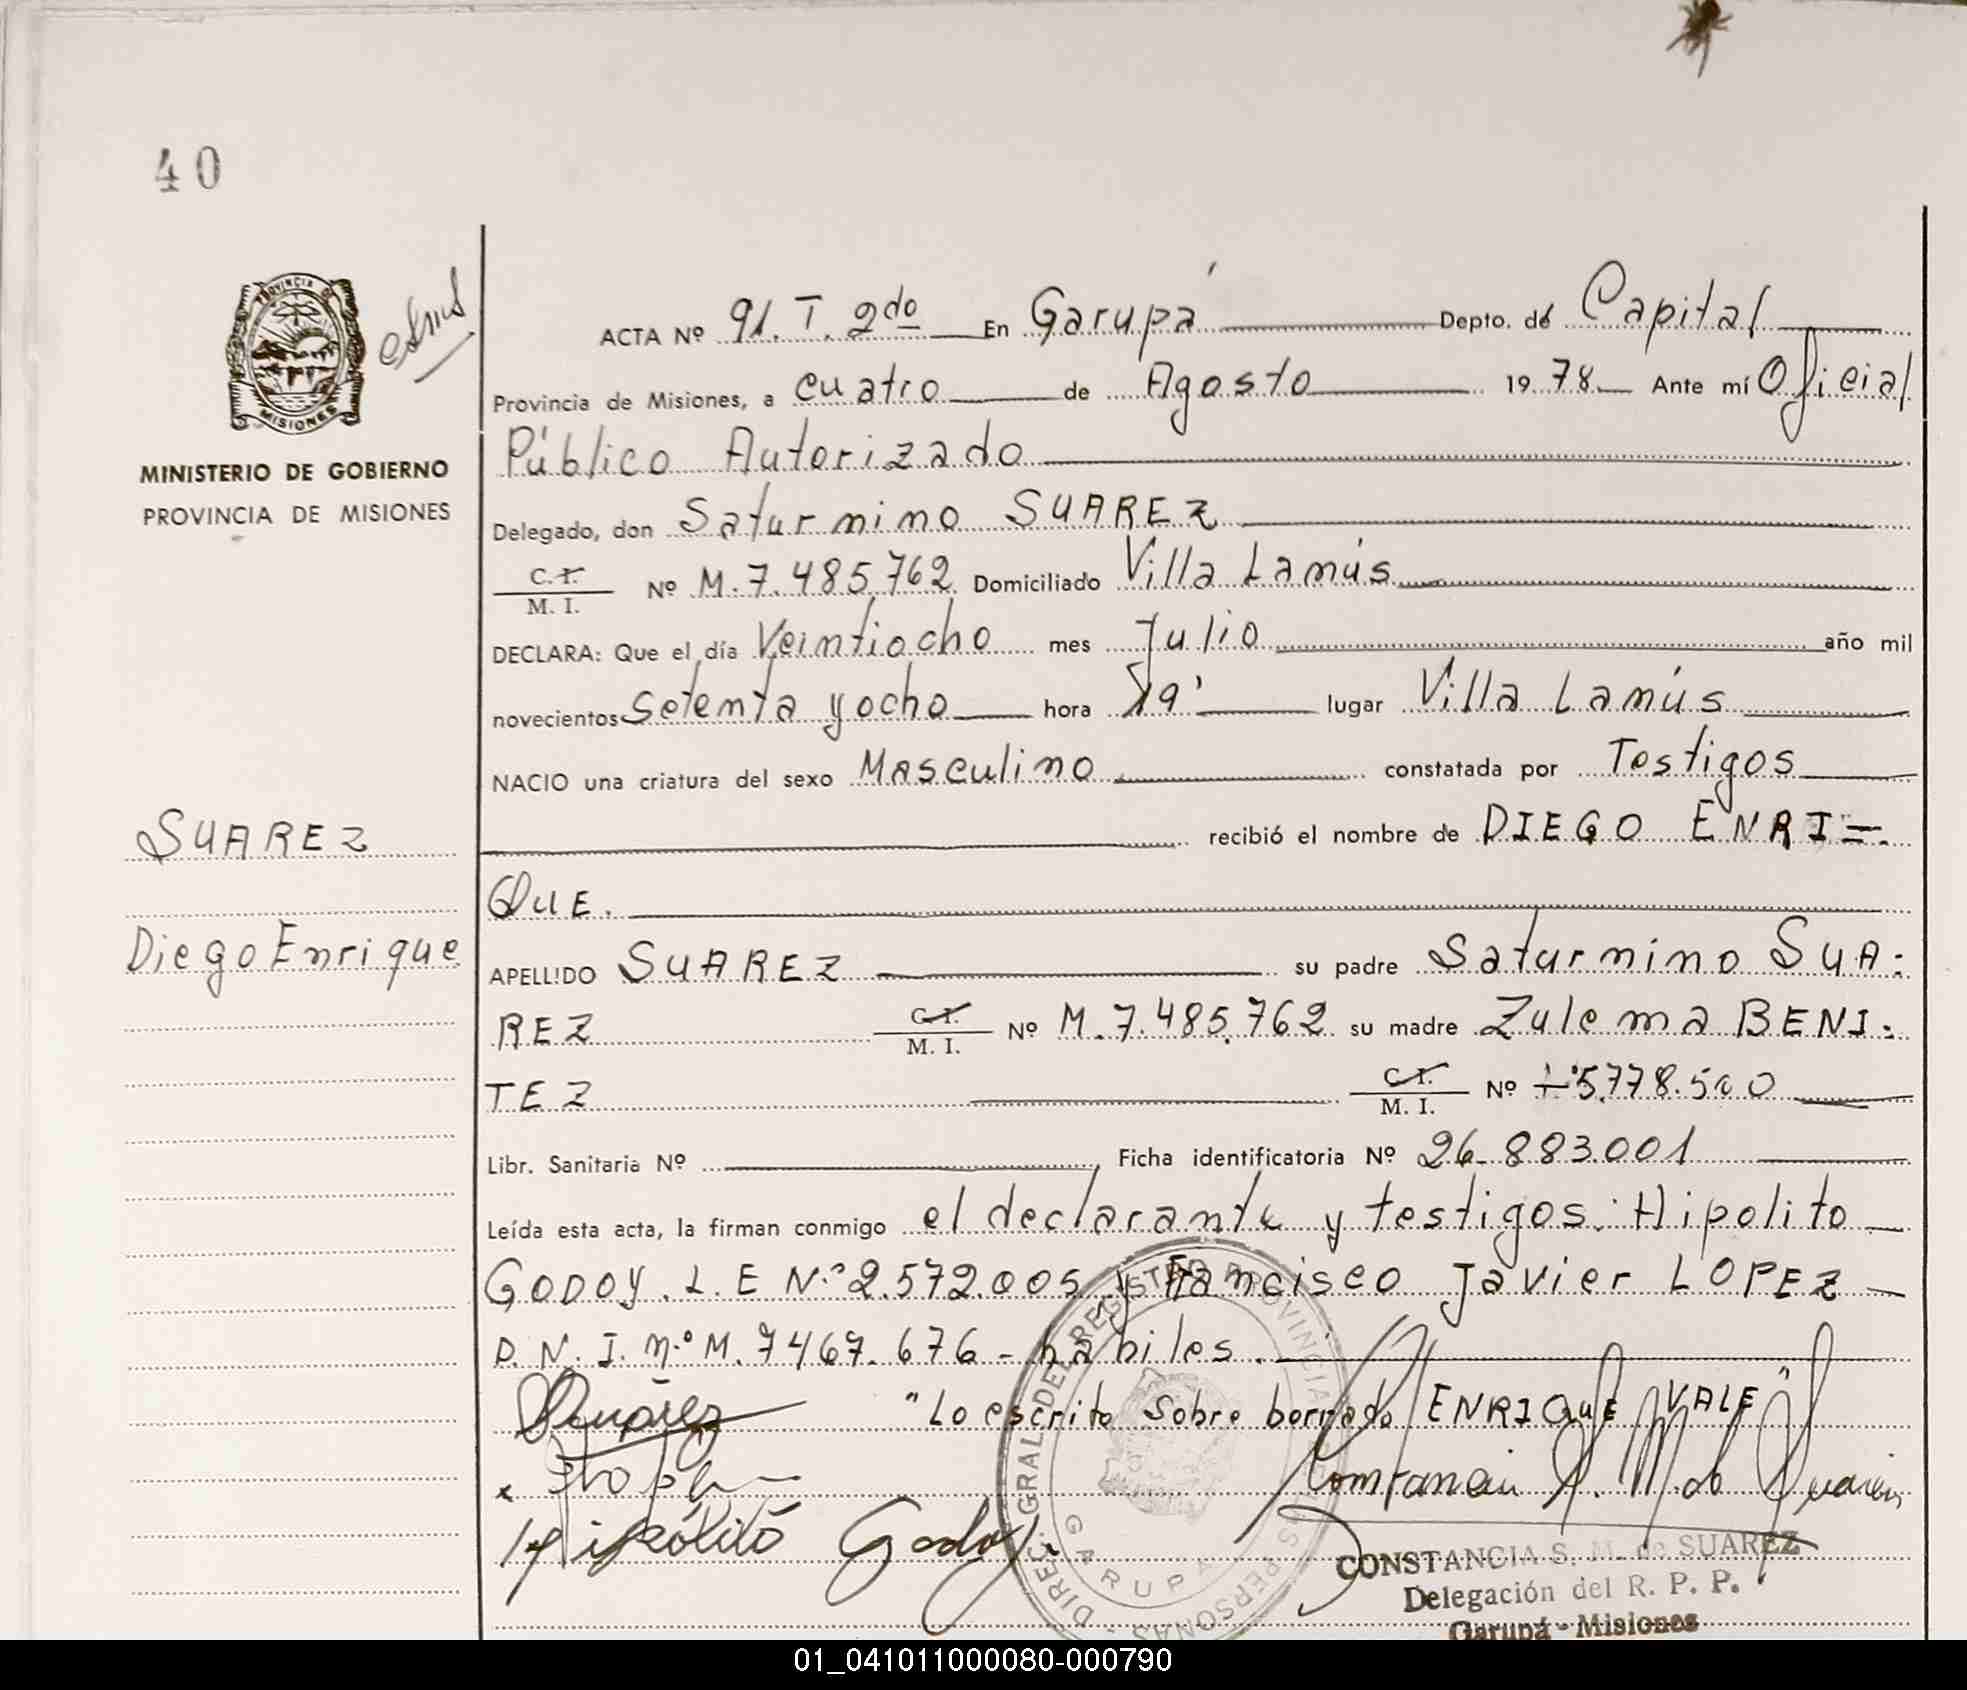 40
PROVINCIA DE
MISIONES
MINISTERIO DE GOBIERNO
PROVINCIA DE MISIONES
ACTA Nº 91. T. 2do En Garupá Depto. de Capital
Provincia de Misiones, a cuatro de Agosto 1978 Ante mí Oficial
Público Autorizado
Delegado, don Saturnino SUAREZ
C.I. / M. I. Nº M.7.485.762 Domiciliado Villa Lanús
DECLARA: Que el día Veintiocho mes Julio año mil
novecientos Setenta y ocho hora 19' lugar Villa Lanús
NACIO una criatura del sexo Masculino constatada por Testigos
SUAREZ
recibió el nombre de DIEGO ENRI=
QUE.
Diego Enrique
APELLIDO SUAREZ su padre Saturnino SUA:
REZ C.I. / M. I. Nº M.7.485.762 su madre Zulema BENI:
TEZ C.I. / M. I. Nº 5.778.500
Libr. Sanitaria Nº Ficha identificatoria Nº 26.883.001
Leída esta acta, la firman conmigo el declarante y testigos: Hipolito
GODOY. L. E Nº 2.572.005 y Francisco Javier LOPEZ
D. N. I. nº M. 7467.676 - habiles.
Suárez "Lo escrito sobre borrado ENRIQUE VALE"
Constancia S. M. de Suarez
Hipólitó Godoy
DIREC. GRAL. DEL REGISTRO PROVINCIAL PERSONAS
GARUPA
CONSTANCIA S. M. de SUAREZ
Delegación del R. P. P.
Garupá - Misiones
01_041011000080-000790